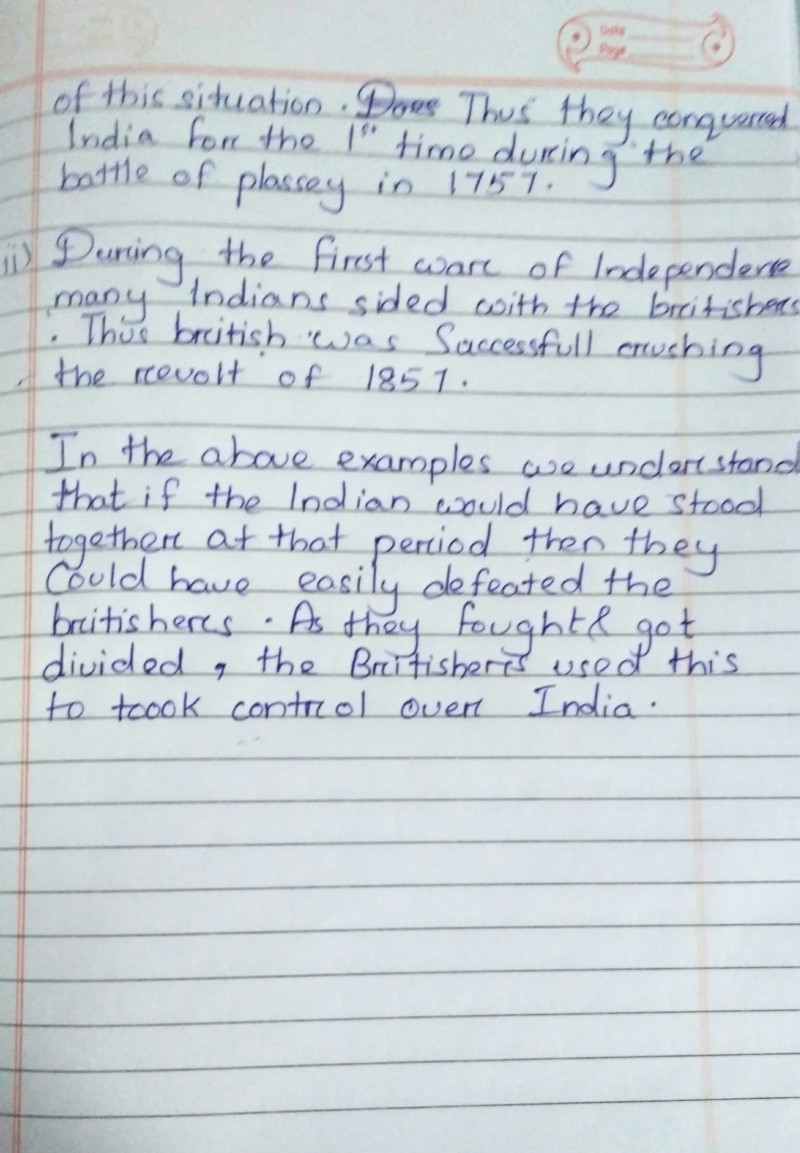 Date
Page
of this situation. Does Thus they conquered
India for the 1st time during the
battle of plassey in 1757.
ii) During the first war of Independence
many Indians sided with the britishers
. Thus british was Successfull crushing
the revolt of 1857.
In the above examples we understand
that if the Indian would have stood
together at that period then they
Could have easily defeated the
britishers. As they fought & got
divided, the Britishers used this
to toook control over India.